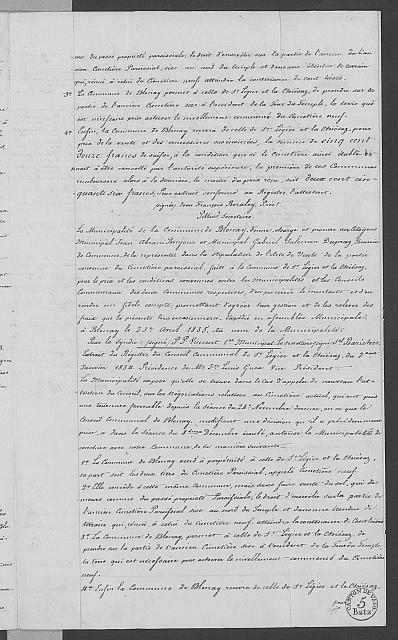 me du passé propriété paroissiale, le droit d'ensevelir sur la partie de l'ancien
cien Cimetière Paroissial, sise au nord du temple et dans une étendue de terrain
qui, réuni à celui du Cimetière neuf, atteindra la contenance de cent toises.
3° La Commune de Blonay permet à celle de St Légier et la Chiésaz, de prendre sur la
partie de l'ancien Cimetière sise à l'occident de la Tour du Temple, la terre qui
est nécessaire pour achever le nivellement commencé du Cimetière neuf.
4° Enfin, la Commune de Blonay recevra de celle de St Légier et la Chiésaz, pour
prix de la vente et des concessions susénoncées, la somme de cinq cent
douze francs de suisse, à la condition que si le Cimetière ainsi établi ve-
nait à être annullé par l'autorité supérieure, la première de ces Communes
remboursera alors à la dernière, la moitié du prix reçu soit deux cent cin-
quante six francs, Pour extrait conforme au Registre, l'attestent.
signés, Jean François Boralay, Prést
Secrétaire.
La Municipalité de la Commune de Blonay, donne charge et pouvoir aux Citoyens
Municipal Jean Abram Bonjour et Municipal Gabriel Salomon Dupraz Boursier
de Commune, de la représenter dans la stipulation de l'acte de Vente de la partie
convenue du Cimetière paroissial, faite à la Commune de St Légier et la Chiésaz,
pour le prix et les conditions convenues entre les Municipalités et les Conseils
Communaux des deux Communes respectives, d'en percevoir le montant et d'en
rendre un fidèle compte, promettant d'agréer leur gestion et de les relever des
faix que la présente leur occasionnera. Expédié en assemblée Municipale,
à Blonay le 23me Avril 1835. Au nom de la Municipalité.
Pour le Syndic: signé, P. P. Vincent 1er Municipal. Le secretaire signé
Extrait du Registre du Conseil communal de St Légier et la Chiésaz, du 2me
Janvier 1834. Présidence de Mr Js Louis Guex Vice Président.
La Municipalité expose qu'elle se trouve dans le cas d'appeler de nouveau l'at-
tention du Conseil, sur les négociations relatives au Cimetière actuel, qui ont pris
une tournure favorable depuis la séance du 28me Novembre dernier, en ce que le
Conseil communal de Blonay, modifiant une décision qu'il a précédemment
prise, a dans la séance du Décembre écoulé, autorisé la Municipalité de
construire avec notre Commune, de la manière suivante.
1° La Commune de Blonay vend à propriété à celle de St Légier et la Chiésaz,
sa part soit les deux tiers du Cimetière Paroissial, appelé Cimetière neuf.
2° Elle concède à cette même Commune, mais sans faire vente du sol, qui de-
meure comme du passé propriété Paroissiale, le droit d'ensevelir sur la partie de
l'ancien Cimetière Paroissial sise au nord du Temple et dans une étendue de
terrain qui, réuni à celui du Cimetière neuf, atteindra la contenance de Cent toises
3° La Commune de Blonay permet à celle de St Légier et la Chiésaz, de
prendre sur la partie de l'ancien Cimetière sise à l'occident de la Tour du Temple,
la terre qui est nécessaire pour achever le nivellement commencé du Cimetière
neuf.
4° Enfin la Commune de Blonay recevra de celle de St Légier et la Chiésaz,
CANTON DE VAUD
5
Batz